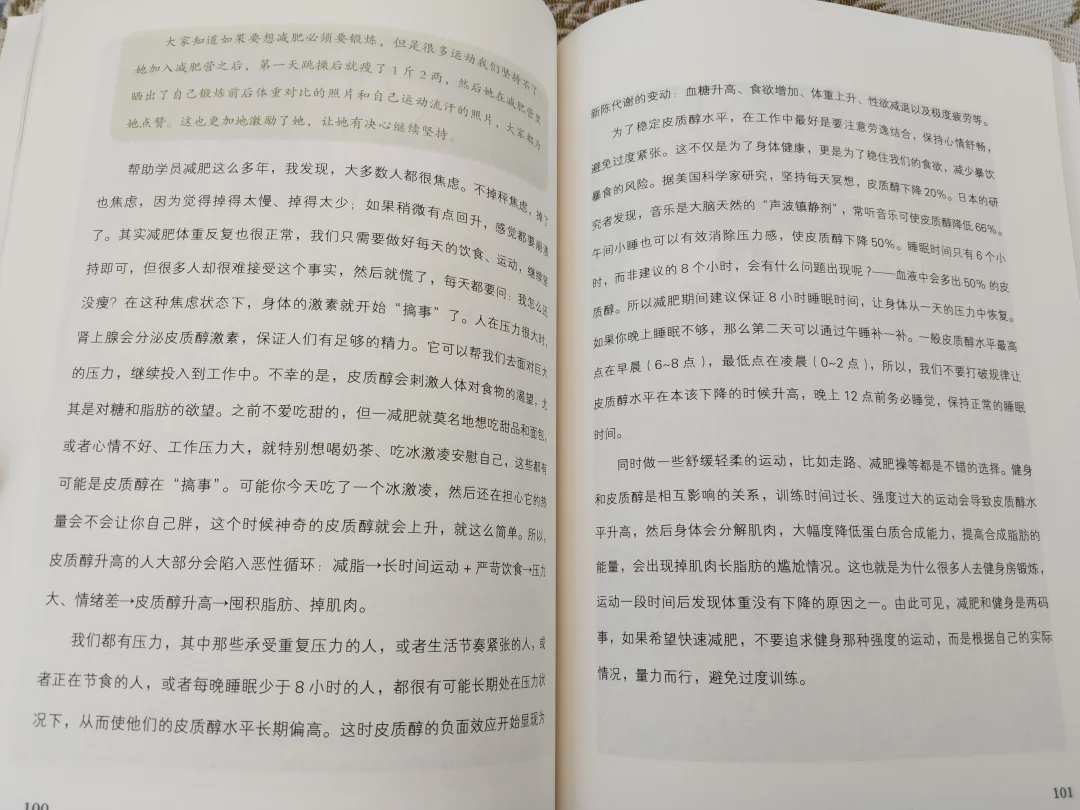 大家知道如果要想减肥必须要锻炼，但是很多运动我们坚持不了。
她加入减肥营之后，第一天跳操后就瘦了1斤2两，然后她在减肥营里
晒出了自己锻炼前后体重对比的照片和自己运动流汗的照片，大家都为
她点赞。这也更加地激励了她，让她有决心继续坚持。
帮助学员减肥这么多年，我发现，大多数人都很焦虑。不掉秤焦虑，掉了
也焦虑，因为觉得掉得太慢、掉得太少；如果稍微有点回升，感觉都要崩溃
了。其实减肥体重反复也很正常，我们只需要做好每天的饮食、运动，继续坚
持即可，但很多人却很难接受这个事实，然后就慌了，每天都要问：我怎么还
没瘦？在这种焦虑状态下，身体的激素就开始“搞事”了。人在压力很大时，
肾上腺会分泌皮质醇激素，保证人们有足够的精力。它可以帮我们去面对巨大
的压力，继续投入到工作中。不幸的是，皮质醇会刺激人体对食物的渴望，尤
其是对糖和脂肪的欲望。之前不爱吃甜的，但一减肥就莫名地想吃甜品和面包，
或者心情不好、工作压力大，就特别想喝奶茶、吃冰激凌安慰自己，这些都有
可能是皮质醇在“搞事”。可能你今天吃了一个冰激凌，然后还在担心它的热
量会不会让你自己胖，这个时候神奇的皮质醇就会上升，就这么简单。所以，
皮质醇升高的人大部分会陷入恶性循环：减脂→长时间运动+严苛饮食→压力
大、情绪差→皮质醇升高→囤积脂肪、掉肌肉。
我们都有压力，其中那些承受重复压力的人，或者生活节奏紧张的人，或
者正在节食的人，或者每晚睡眠少于8小时的人，都很有可能长期处在压力状
况下，从而使他们的皮质醇水平长期偏高。这时皮质醇的负面效应开始显现为
100
新陈代谢的变动：血糖升高、食欲增加、体重上升、性欲减退以及极度疲劳等。
为了稳定皮质醇水平，在工作中最好是要注意劳逸结合，保持心情舒畅，
避免过度紧张。这不仅是为了身体健康，更是为了稳住我们的食欲，减少暴饮
暴食的风险。据美国科学家研究，坚持每天冥想，皮质醇下降20%。日本的研
究者发现，音乐是大脑天然的“声波镇静剂”，常听音乐可使皮质醇降低66%。
午间小睡也可以有效消除压力感，使皮质醇下降50%。睡眠时间只有6个小
时，而非建议的8个小时，会有什么问题出现呢？——血液中会多出50%的皮
质醇。所以减肥期间建议保证8小时睡眠时间，让身体从一天的压力中恢复。
如果你晚上睡眠不够，那么第二天可以通过午睡补一补。一般皮质醇水平最高
点在早晨（6~8点），最低点在凌晨（0~2点），所以，我们不要打破规律让
皮质醇水平在本该下降的时候升高，晚上12点前务必睡觉，保持正常的睡眠
时间。
同时做一些舒缓轻柔的运动，比如走路、减肥操等都是不错的选择。健身
和皮质醇是相互影响的关系，训练时间过长、强度过大的运动会导致皮质醇水
平升高，然后身体会分解肌肉，大幅度降低蛋白质合成能力，提高合成脂肪的
能量，会出现掉肌肉长脂肪的尴尬情况。这也就是为什么很多人去健身房锻炼，
运动一段时间后发现体重没有下降的原因之一。由此可见，减肥和健身是两码
事，如果希望快速减肥，不要追求健身那种强度的运动，而是根据自己的实际
情况，量力而行，避免过度训练。
101